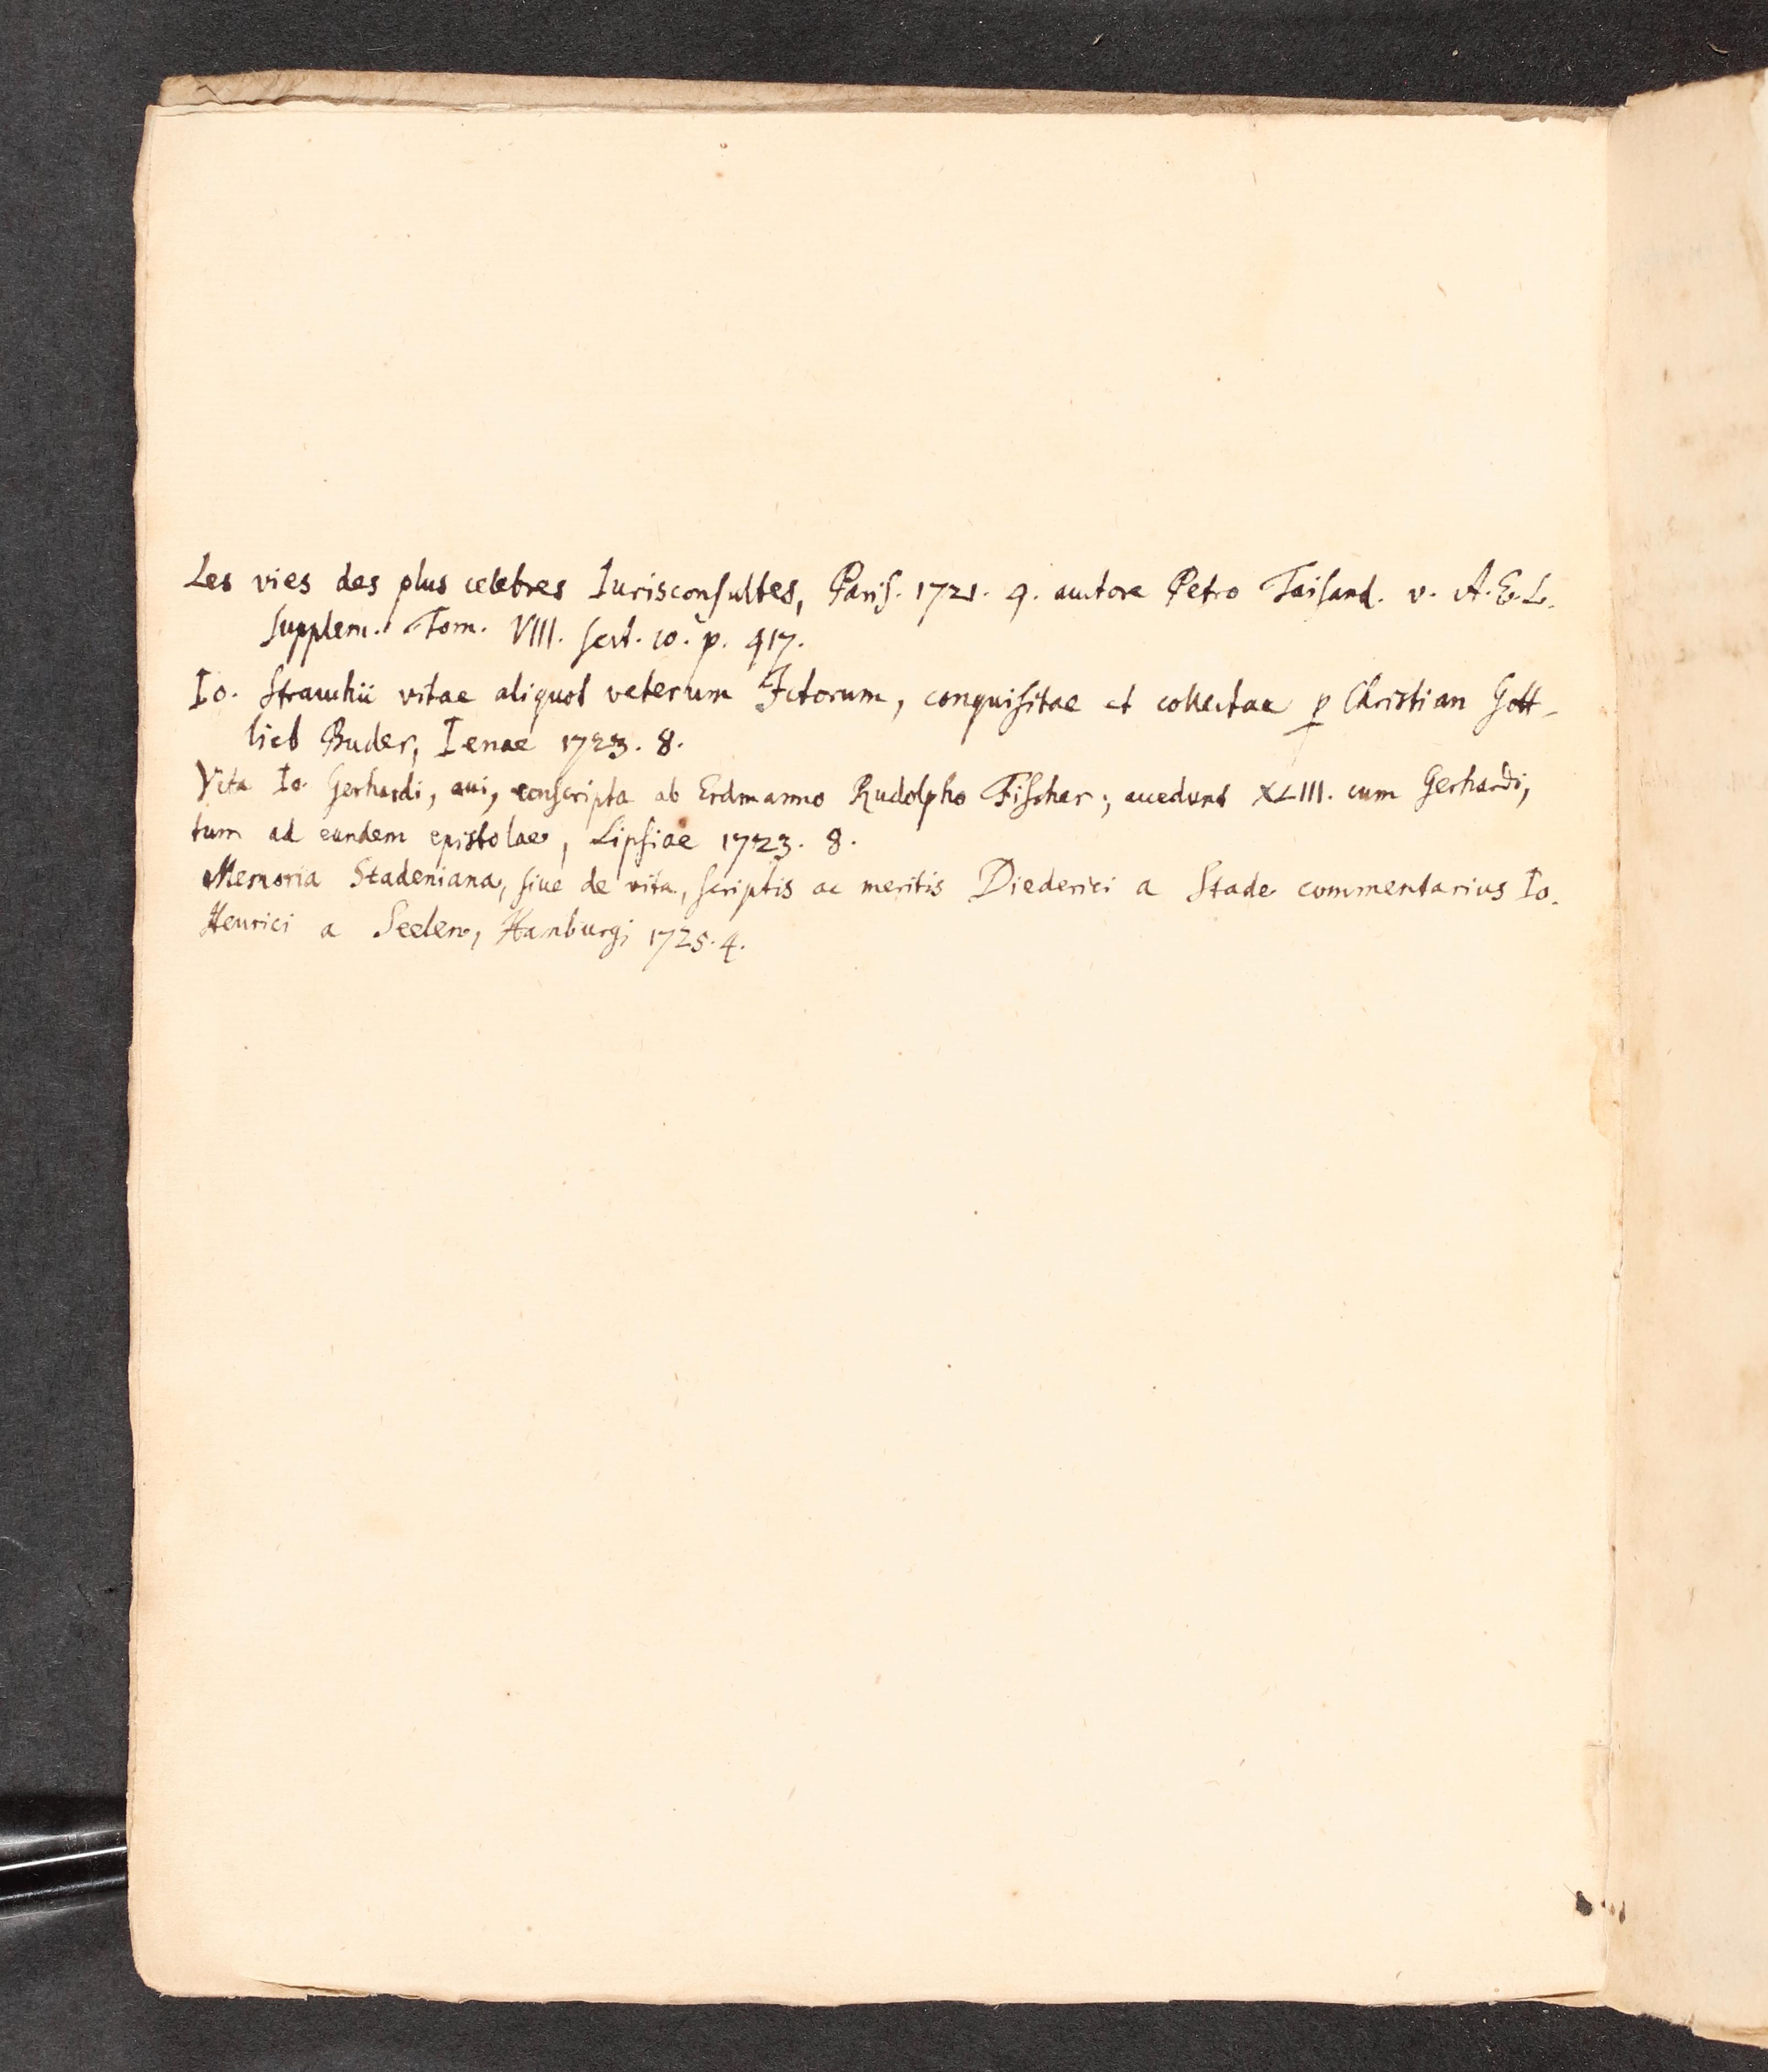 Les vies des plus celebres Iurisconsultes, Paris. 1721. 4. autore Petro Taisand. v. A. E. L.
supplem. Tom. VIII. sect. 10. p. 417.
Io. Strauchii vitae aliquot veterum Ictorum, conquisitae et collectae p Christian Gott-
lieb Buder, Ienae 1723. 8.
Vita Io. Gerhardi, aui, conscripta ab Erdmanno Rudolpho Fischer; accedunt XLIII. cum Gerhardi,
tum ad eundem epistolae, Lipsiae 1723. 8.
Memoria Stadeniana, siue de vita, scriptis ac meritis Diederici a Stade commentarius Io.
Henrici a Seelen, Hamburgi 1725. 4.